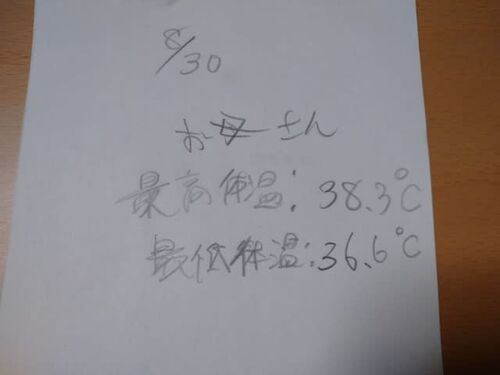 8/30
お母さん
最高体温:38.3℃
最低体温:36.6℃